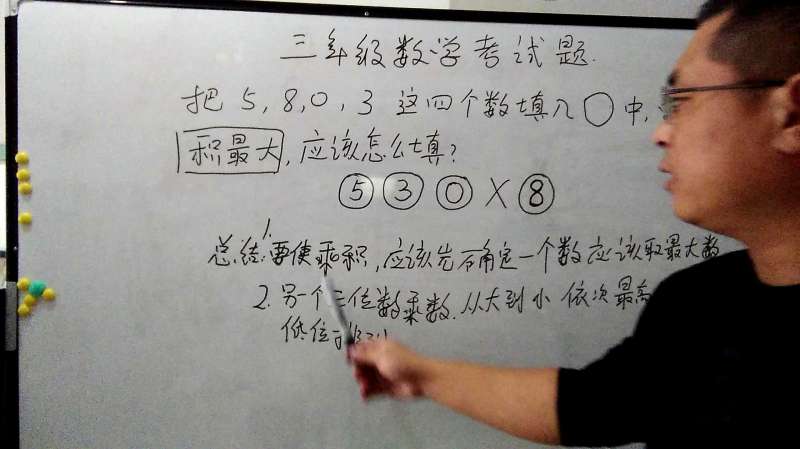 三年级数学考试题.
把 5, 8, 0, 3 这四个数填入○中,
积最大, 应该怎么填?
⑤ ③ ⓪ × ⑧
总结: 1. 要使乘积, 应该先确定一个数应该取最大数
2. 另一个三位数乘数. 从大到小 依次 最高
低位